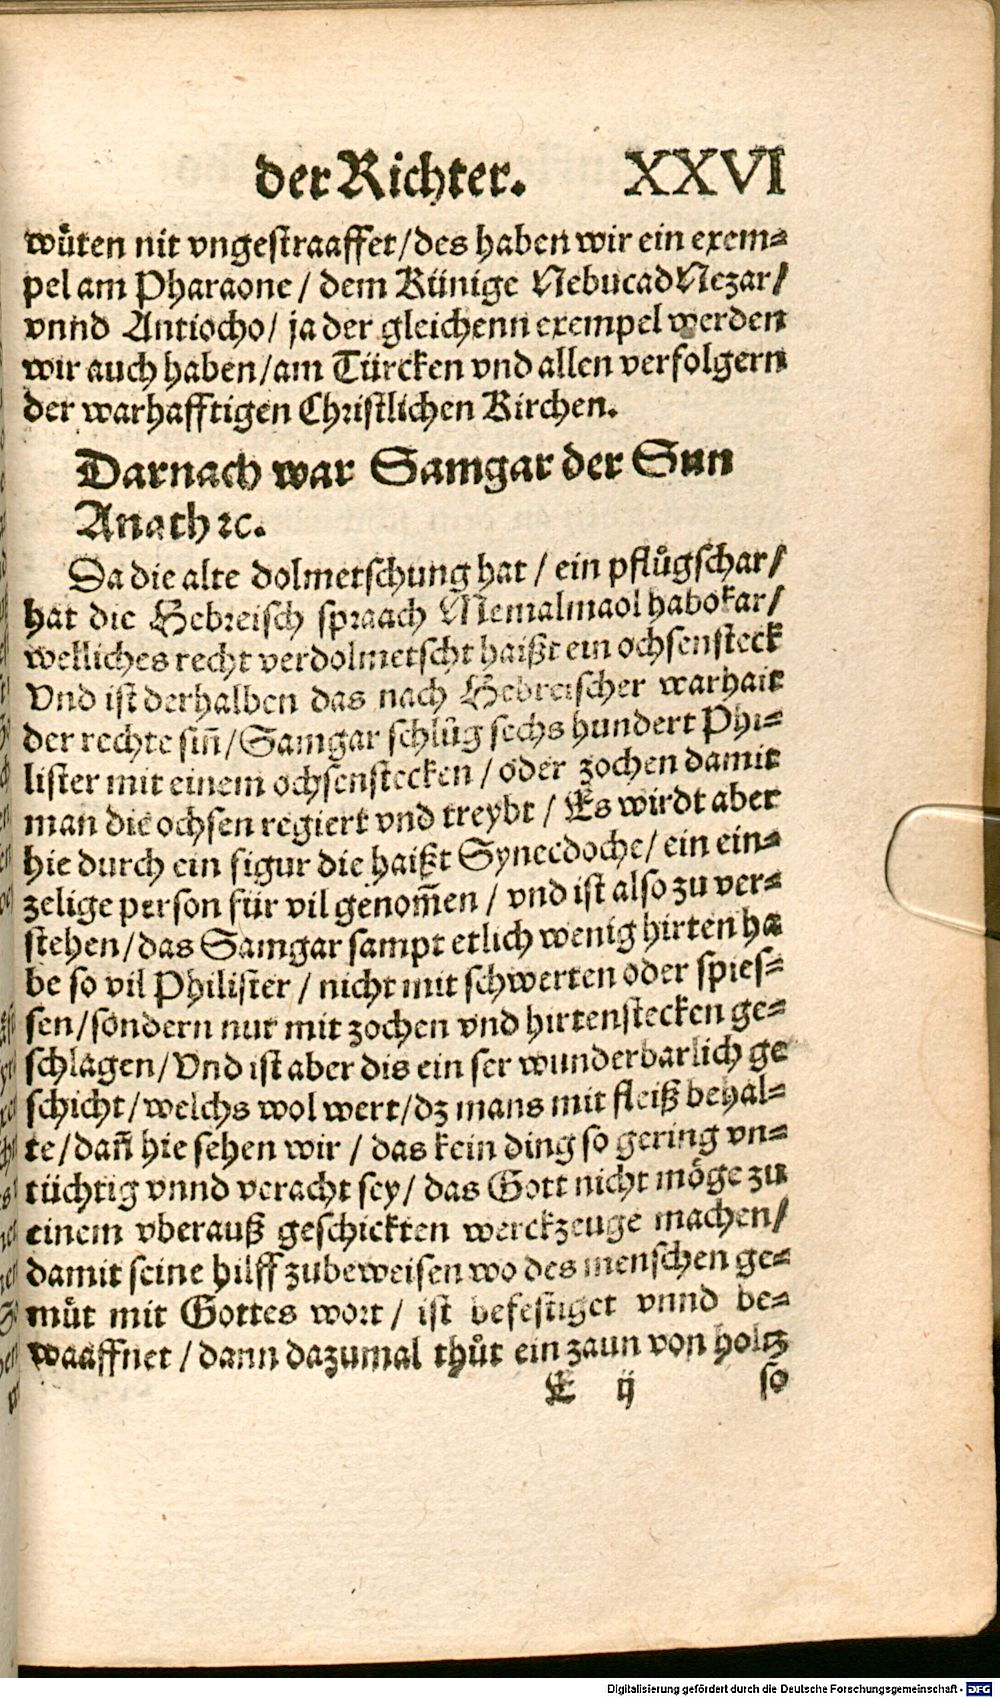 der Richter. XXVI
wůten nit vngestraaffet/des haben wir ein exem⸗
pel am Pharaone/ dem Künige NebucadNezar/
vnnd Antiocho/ ja der gleichenn exempel werden
wir auch haben/am Türcken vnd allen verfolgern
der warhafftigen Christlichen Kirchen.
Darnach war Samgar der Sun
Anath ꝛc.
Da die alte dolmetschung hat/ ein pflůgschar/
hat die Hebreisch spraach Memalmaol habokar/
welliches recht verdolmetscht haißt ein ochsensteck
Vnd ist derhalben das nach Hebreischer warhait
der rechte siñ/Samgar schlůg sechs hundert Phi⸗
lister mit einem ochsenstecken/ oder zochen damit
man die ochsen regiert vnd treybt/ Es wirdt aber
hie durch ein figur die haißt Synecdoche/ ein ein⸗
zelige person für vil genom̃en/ vnd ist also zu ver⸗
stehen/das Samgar sampt etlich wenig hirten ha
be so vil Philister/ nicht mit schwerten oder spies⸗
sen/sondern nur mit zochen vnd hirtenstecken ge⸗
schlagen/Vnd ist aber dis ein ser wunderbarlich ge
schicht/welchs wol wert/dz mans mit fleiß behal⸗
te/dañ hie sehen wir/ das kein ding so gering vn⸗
tüchtig vnnd veracht sey/ das Gott nicht möge zu
einem vberauß geschickten werckzeuge machen/
damit seine hilff zubeweisen wo des menschen ge⸗
můt mit Gottes wort/ ist befestiget vnnd be⸗
waaffnet/dann dazumal thůt ein zaun von holtz
E ij so
Digitalisierung gefördert durch die Deutsche Forschungsgemeinschaft - DFG